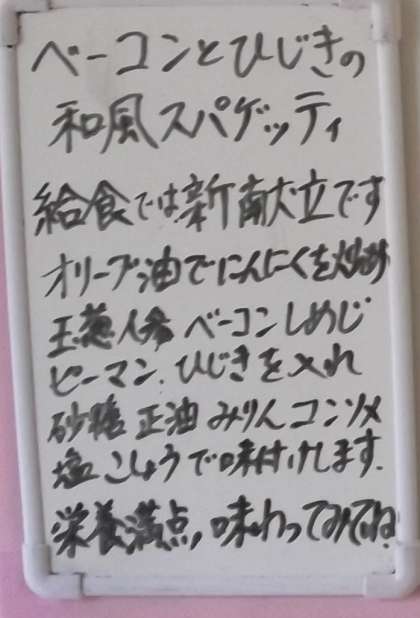 ベーコンとひじきの
和風スパゲッティ
給食では新献立です
オリーブ油でにんにくを炒め
玉葱人参ベーコンしめじ
ピーマン、ひじきを入れ
砂糖 正油 みりん コンソメ
塩 こしょうで味付けします.
栄養満点, 味わってみてね